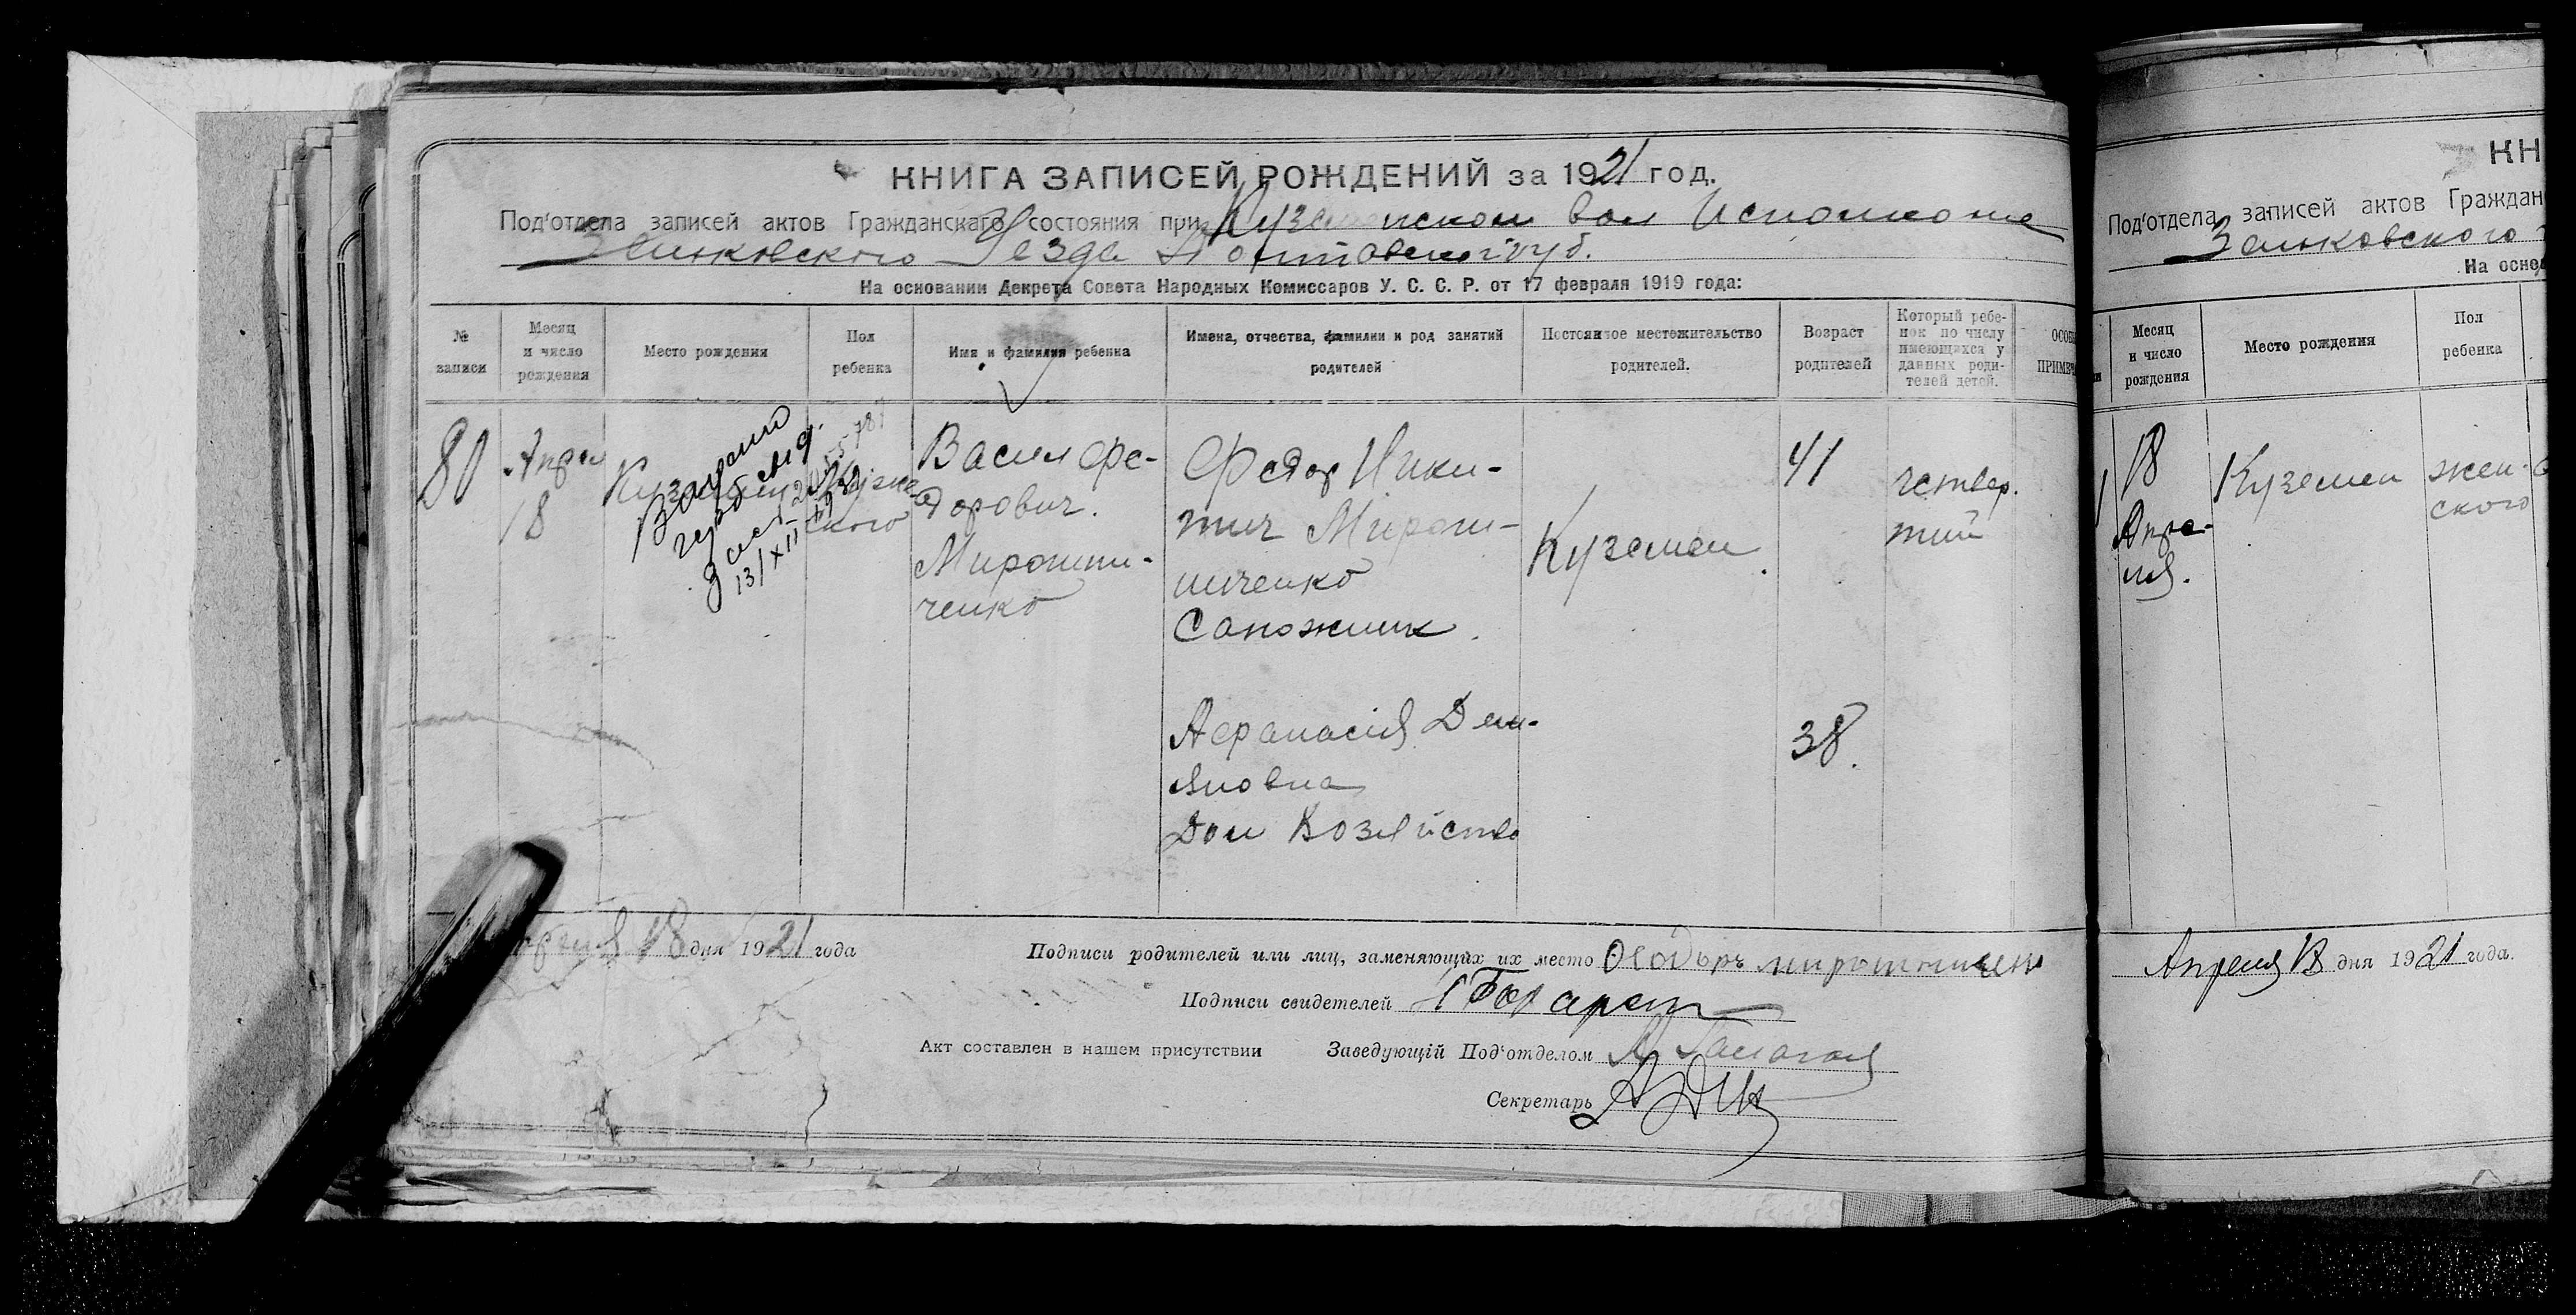 КНИГА ЗАПИСЕЙ РОЖДЕНИЙ за 1921 год.
Под'отдела записей актов Гражданскаго состояния при Куземенском вол Исполкоме
Зеньковского Уезда Полтавской губ.
На основании Декрета Совета Народных Комиссаров У. С. С. Р. от 17 февраля 1919 года:
№ записи
Месяц и число рождения
Место рождения
Пол ребенка
Имя и фамилия ребенка
Имена, отчества, фамилии и род занятий родителей
Постоянное местожительство родителей.
Возраст родителей
Который ребенок по числу имеющихся у данных родителей детей.
80
Апрел
18
Куземен
Муже-
ского
13/XII
Васил Фе-
дорович.
Мирошни-
ченко
Федор Ники-
тич Мирош-
ниченко
Сапожник.
Афанасия Дем-
яновна
Дом Хозяйство
Куземен.
41
38.
четвер.
тий
Апреля 18 дня 1921 года
Подписи родителей или лиц, заменяющих их место Феодоръ мирошничен
Подписи свидетелей
Акт составлен в нашем присутствии
Заведующій Под'отделом
Секретарь
КН
Под'отдела записей актов Граждан
Зеньковского
На осно
Месяц и число рождения
Место рождения
Пол ребенка
18
Апре-
ля.
Куземен
жен-
ского
Апреля 18 дня 1921 года.